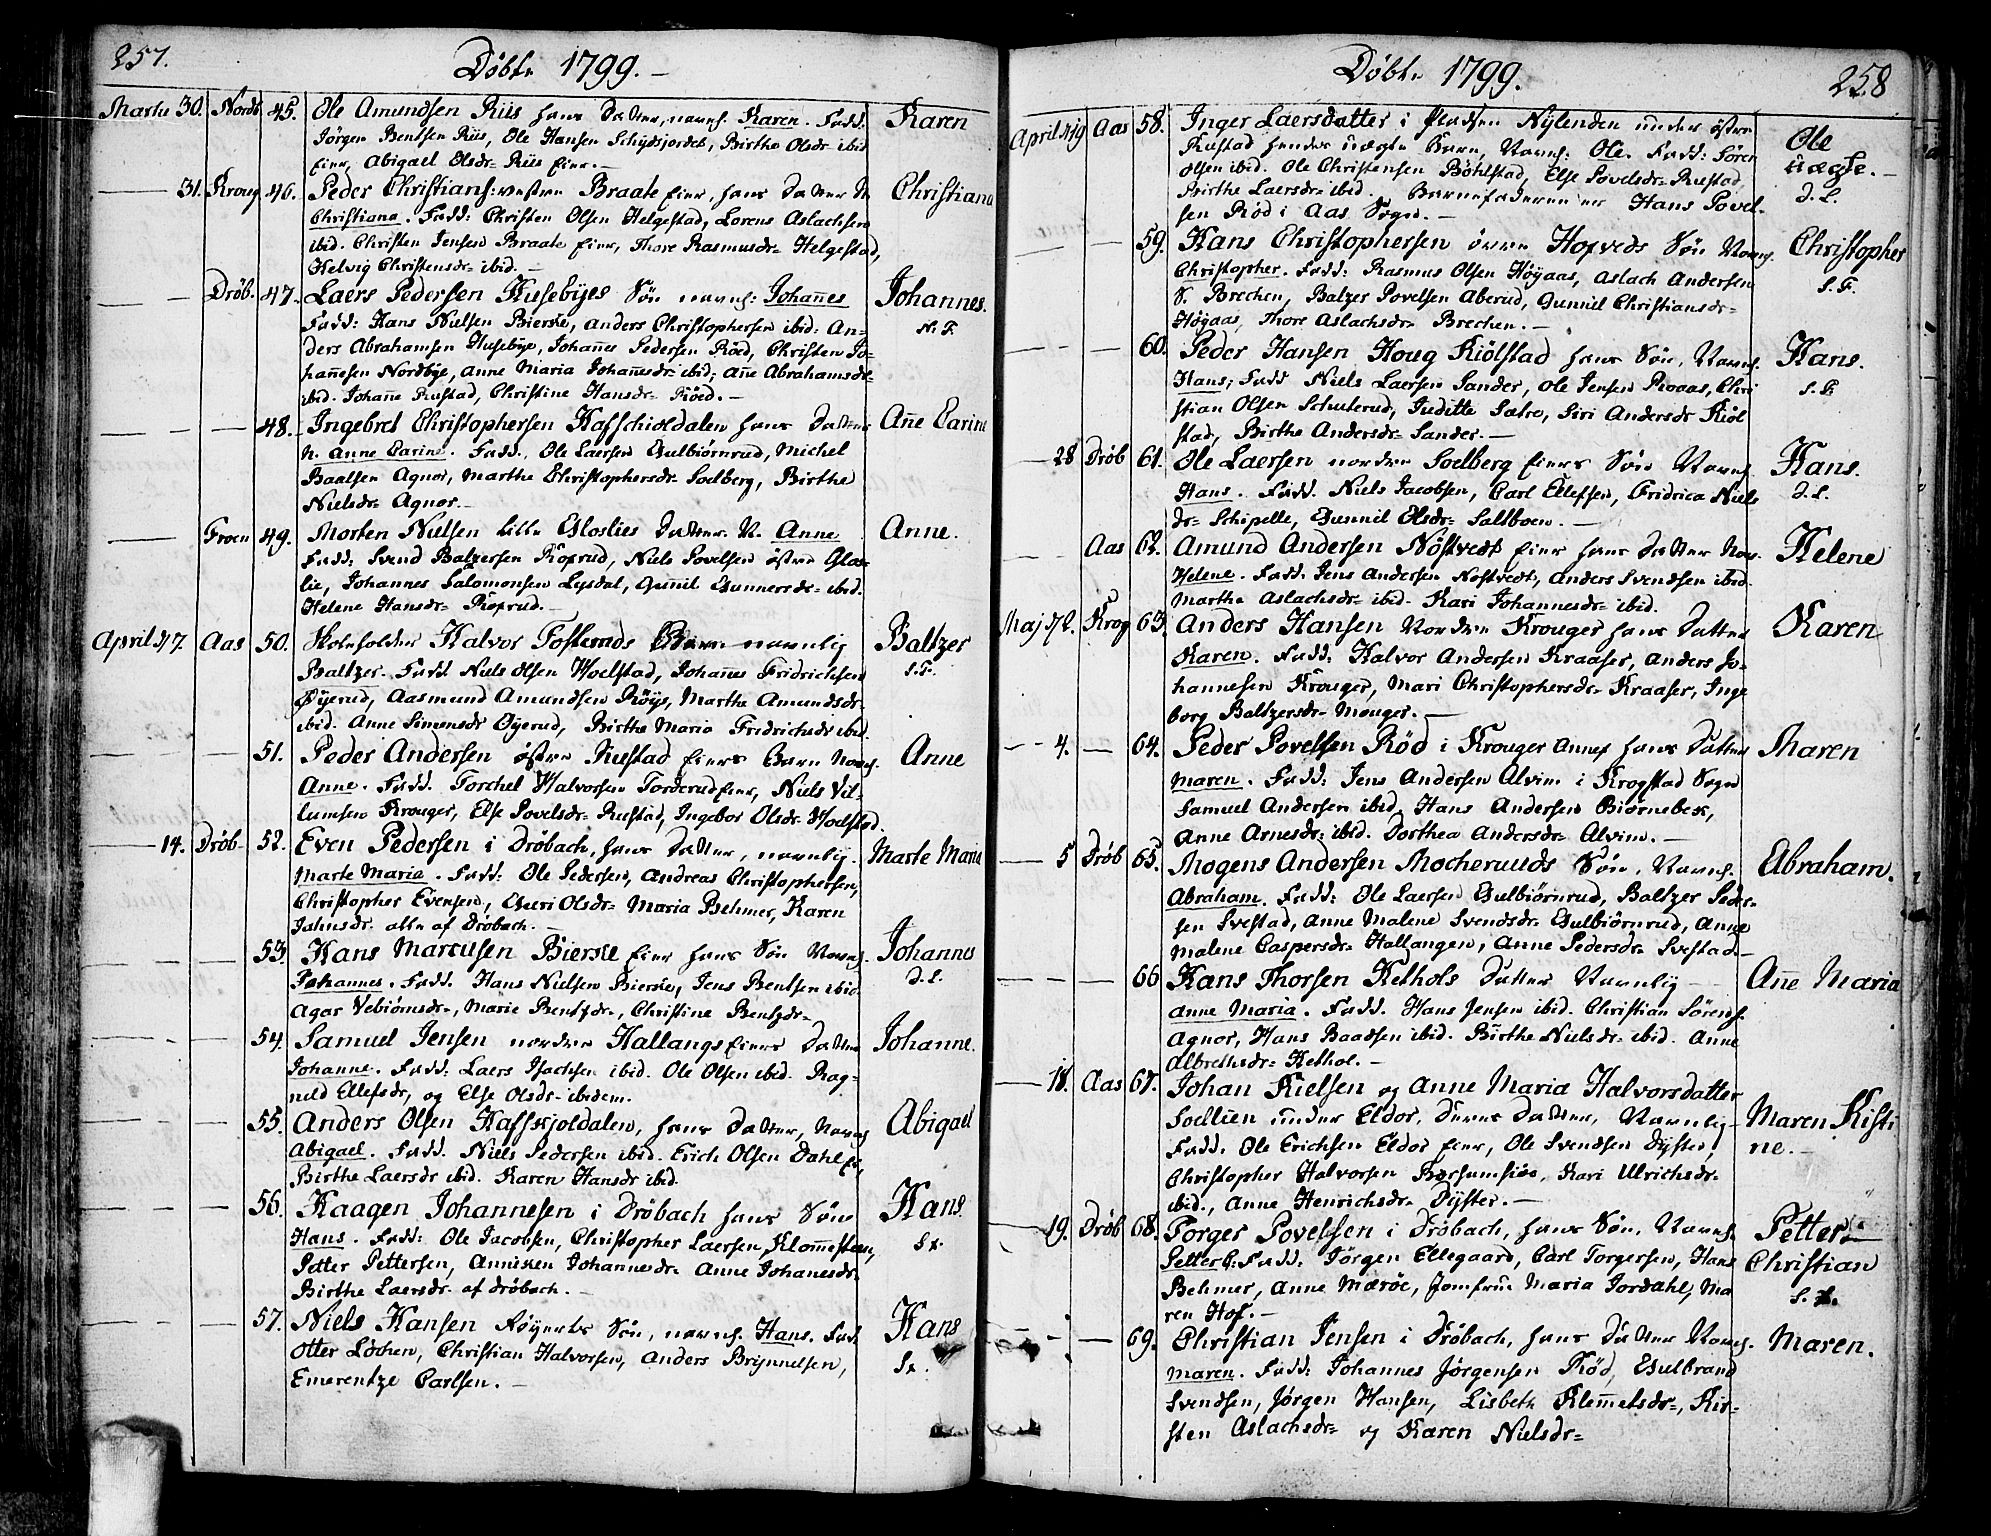 257.
Döbte 1799. –
Martii 30. Nordb. 45. Ole Amundsen Riis hans Datter, navnl. Karen. Fadd: Karen
Jörgen Bentsen Riis, Ole Hansen Schydsjordet, Birthe Olsdr ibid
Eier, Abigael Olsdr= Riis Eier. –
31. Kroug 46. Peder Christians: vestre Braate Eier, hans Datter N. Christiana
Christiana. Fadd: Christen Olsen Helgestad, Lorens Aslachsen
ibid. Christen Jensen Braate Eier, Thore Rasmusdr= Helgestad,
Helvig Christensdr= ibid. –
Dröb. 47. Laers Pedersen Husebyes Sön navnl: Johañes Johannes.
Fadd: Hans Nielsen Bierske, Anders Christophersen ibid: An- N. F.
ders Abrahamsen Husebye, Johañes Pedersen Röed, Christen Jo-
hañesen Nordbye, Anne Maria Johañesdr= ibid; Añe Abrahamsdr=
ibid. Johañe Rustad, Christine Hansdr= Röed. –
48. Ingebret Christophersen Haffschioldalen hans Datter Añe Carine
N. Anne Carine. Fadd. Ole Laersen Gulbiörnrud, Michel
Baalsen Agnor, Marthe Christophersdr= Solberg, Birthe
Nielsdr= Agnor. –
Froen 49. Morten Nielsen Lille Gloslies Datter N. Anne Anne.
Fadd: Svend Baltzersen Röxrud, Niels Povelsen östre Glos-
lie, Johannes Salomonsen Lysdal, Guñil Gunnersdr= ibid.
Helene Hansdr= Röxrud. –
April d 7. Aas 50. Skoleholder Halvor Fosteruds Barn navnlig Baltzer
Baltzer. Fadd Niels Olsen Hoelstad, Johañes Fridrichsen S. F.
Öyerud, Aasmund Amundsen Röys, Marthe Amundsdr
ibid. Anne Simonsdr Öyerud, Birthe Maria Fridrichsdr ibid.
51. Peder Andersen östre Rustad Eiers Barn navnl. Anne
Anne. Fadd. Torchel Halvorsen Torderud Eier, Niels Vil-
lumsen Krouger, Else Povelsdr= Rustad, Ingebor Olsdr= Hoelstad.
14. Dröb- 52. Even Pedersen i Dröbach, hans Datter, navnlig- Marte Maria
Marte Maria. Fadd: Ole Pedersen, Andreas Christophersen,
Christopher Evensen, Guri Olsdr= Maria Behmer, Karen
Jahnsdr. alle af Dröbach. –
53. Hans Marcusen Bierske Eier hans Sön Navnl. Johannes
Johannes. Fadd. Hans Nielsen Bierske, Jens Bentsen ibid. D. L.
Agar Vebiörnsdr=, Marie Bentzdr=, Christine Bentzdr=
54. Samuel Jensen nordre Hallangs Eiers Datter Johanne.
Johanne. Fadd: Laers Isachsen ibid. Ole Olsen ibid. Rag-
nild Ellefsdr, og Else Olsdr= ibidem.
55. Anders Olsen Haffskjoldalen, hans Datter, Navnl Abigael
Abigael. Fadd. Niels Pedersen ibid. Erich Olsen Dahl Ei,
Birthe Laersdr ibid. Karen Hansdr ibid.
56. Haagen Johannesen i Dröbach hans Sön Hans.
Hans. Fadd: Ole Jacobsen, Christopher Laersen, Klomesten,
Petter Pettersen, Anniken Johannesdr= Anne Johanesdr=
Birthe Laersdr= af Dröbach. –
57. Niels Hansen Röyerts Sön, navnl. Hans. Fad. Hans
Otter Löchen, Christian Halvorsen, Anders Brynnelsen,
Emerentze Carlsen. –
258
Döbte 1799.
April d 19 Aas 58. Inger Laersdatter i Pladsen Nylenden under östre Ole
Rustad hendes uægte Barn, Navnl: Ole. Fadd: Sören uægte. –
Olsen ibid. Ole Christensen Böhlstad, Else Povelsdr= Rustad,
Birthe Laersdr= ibid. Barnefaderen er Hans Povel- D. L.
sen Röd i Aas Sogn. –
59. Hans Christophersen övre Hoxveds Sön Navnl. Christopher
Christopher. Fadd: Rasmus Olsen Högaas, Aslach Andersen S. F.
S. Brechen, Baltzer Povelsen Aberud, Gunnil Christiansdr=
Högaas, Thore Aslachsdr= Brechen. –
60. Peder Hansen Houg Kiölstad hans Sön, Navnl. Hans.
Hans; Fadd Niels Laersen Sander, Ole Jensen Roaas, Chri S. F.
stian Olsen Schuterud, Juditte Sætre, Siri Andersdr Kiöl
stad, Birthe Andersdr= Sander. –
28 Dröb 61. Ole Laersen nordre Soelberg Eiers Sön Navnl. Hans.
Hans. Fadd. Niels Jacobsen, Carl Ellefsen, Fridrica Niels D. L.
dr= Schipelle, Gunnil Olsdr= Saltboen. –
Aas 62. Amund Andersen Nöstvedt Eier hans Datter Nav. Helene
Helene. Fadd. Jens Andersen Nöstvedt, Anders Svendsen ibid.
Marthe Aslachsdr= ibid. Kari Johannesdr= ibid.
Maj d 2. Krog 63. Anders Hansen Nordre Krouger hans Datter Karen
Karen. Fadd: Halvor Andersen Kraaser, Anders Jo-
hannesen Krouger, Mari Christophersdr= Kraaser, Inge
borg Baltzersdr= Mouger. –
4. 64. Peder Povelsen Röd i Krouger Annex hans Datter Maren
Maren. Fadd: Jens Andersen Alvim i Krogstad Sogn
Samuel Andersen ibid, Hans Andersen Biörnebek,
Anne Arnesdr= ibid. Dorthea Andersdr= Alvim. –
5 Dröb 65. Mogens Andersen Mocheruuds Sön, Navnl. Abraham.
Abraham. Fadd: Ole Laersen Gulbiörnrud, Baltzer Peder-
sen Svestad, Anne Malene Svendsdr= Gulbiörnrud, Anne
Malene Caspersdr= Hallangen, Anne Pedersdr= Svestad –
66 Hans Thorsen Kethols Datter Navnlig Añe Maria
Anne Maria. Fadd. Hans Jensen ibid. Christian Sörens.
Agnor, Hans Baadsen ibid. Birthe Nielsdr= ibid. Anne
Albrethsdr= Kethol. –
18. Aas 67. Johan Kielsen og Anne Maria Halvorsdatter
Soelien under Eldor, Deres Datter, Navnlig- Maren Kisti
Fadd. Ole Erichsen Eldor Eier, Ole Svendsen Dyster, ne. –
Christopher Halvorsen Kærsumsiöe, Kari Ulrichsdr=
ibid., Anne Henrichsdr= Dyster. –
19. Dröb 68. Torger Povelsen i Dröbach, hans Sön, Navnl. Petter
Petter C: Fadd: Jörgen Ellegaard, Carl Torgersen, Hans Christian
Behmer, Anne Maröe, Jomfrue Maria Jordahl, Ma
ren Hof. –
69. Christian Jensen i Dröbach, hans Datter Navnl. Maren.
Maren. Fadd: Johannes Jörgensen Röd, Gulbrand
Svendsen, Jörgen Hansen, Lisbeth Klemetsdr=, Kir-
sten Aslachsdr= og Karen Nielsdr=